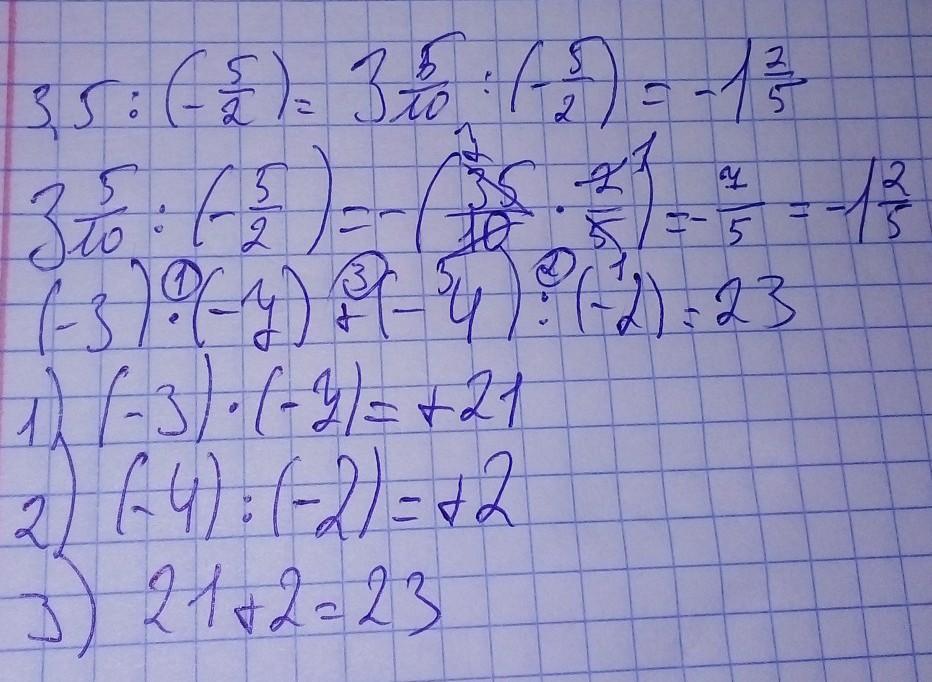 3,5 : (-5/2) = 3 5/10 : (-5/2) = -1 2/5
3 5/10 : (-5/2) = -(35/10 · 2/5) = -7/5 = -1 2/5
(-3) · (-7) + (-4) : (-2) = 23
1) (-3) · (-7) = +21
2) (-4) : (-2) = +2
3) 21 + 2 = 23